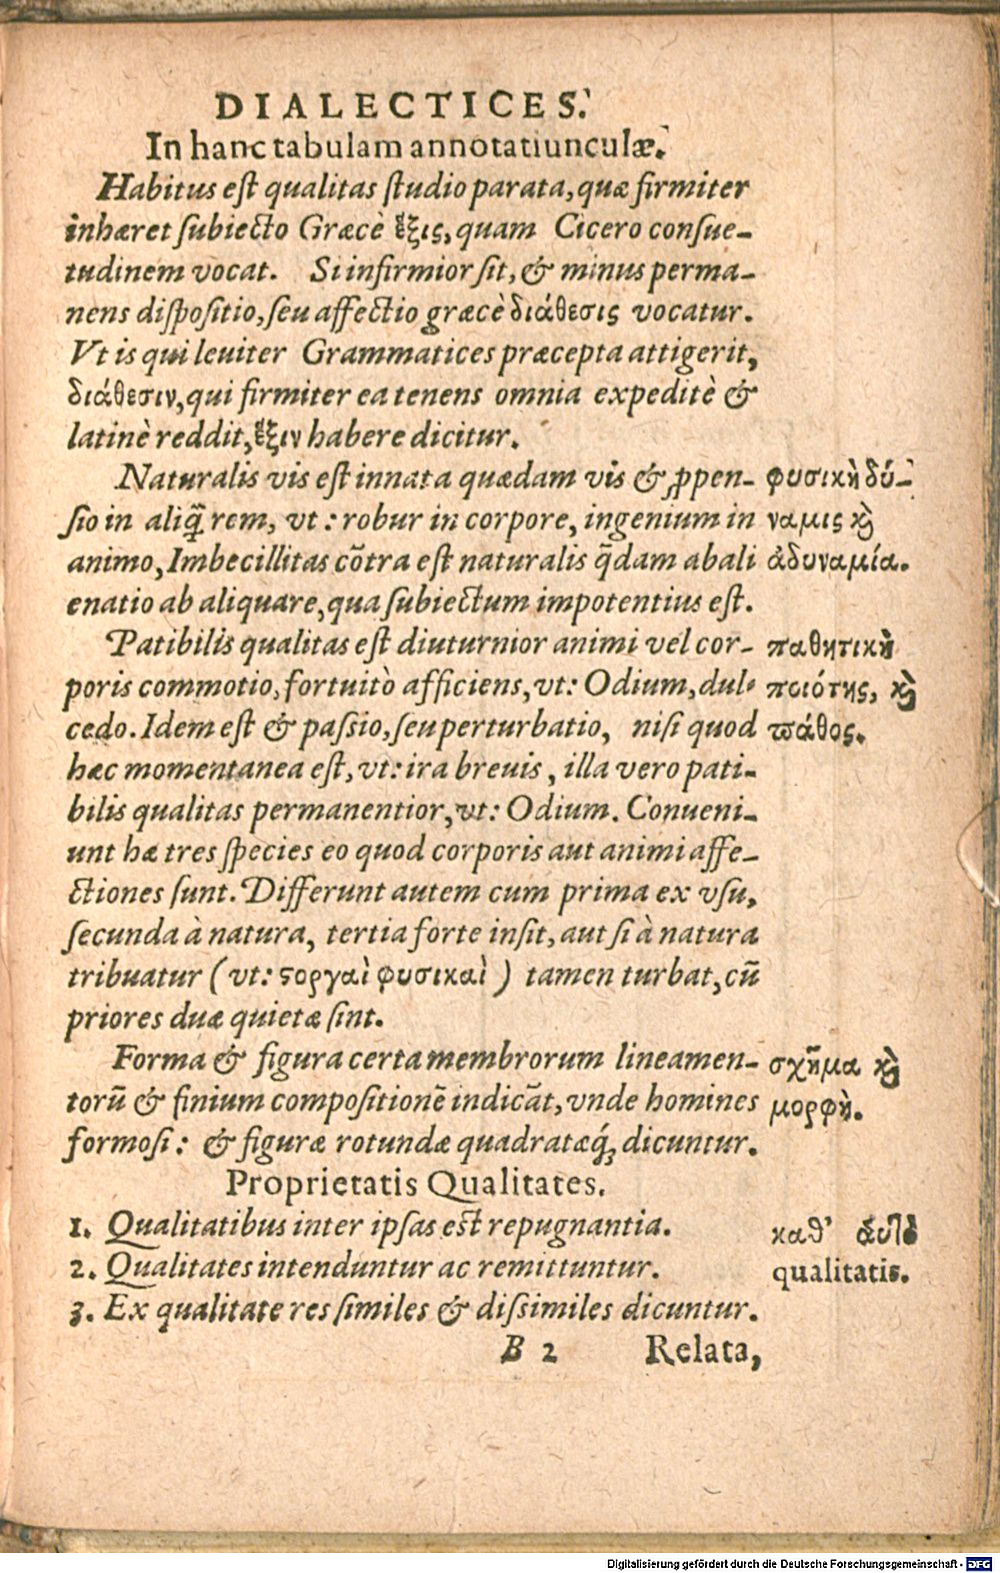 DIALECTICES.
In hanc tabulam annotatiunculæ.
Habitus est qualitas studio parata, quæ firmiter
inhæret subiecto Græcè ἕξις, quam Cicero consue-
tudinem vocat. Si infirmior sit, & minus perma-
nens dispositio, seu affectio græcè διάθεσις vocatur.
Vt is qui leuiter Grammatices præcepta attigerit,
διάθεσιν, qui firmiter ea tenens omnia expeditè &
latinè reddit, ἕξιν habere dicitur.
Naturalis vis est innata quædam vis & ꝓpen-
sio in aliquã rem, vt: robur in corpore, ingenium in
animo, Imbecillitas cõtra est naturalis q̃dam abali
enatio ab aliqua re, qua subiectum impotentius est.
φυσικὴ δύ-
ναμις ϗ
ἀδυναμία.
Patibilis qualitas est diuturnior animi vel cor-
poris commotio, fortuitò afficiens, vt: Odium, dul-
cedo. Idem est & passio, seu perturbatio, nisi quod
hæc momentanea est, vt: ira breuis, illa vero pati-
bilis qualitas permanentior, vt: Odium. Conueni-
unt hæ tres species eo quod corporis aut animi affe-
ctiones sunt. Differunt autem cum prima ex vsu,
secunda à natura, tertia forte insit, aut si à natura
tribuatur (vt: ϛοργαὶ φυσικαὶ) tamen turbat, cũ
priores duæ quietæ sint.
παθητικὴ
ποιότης, ϗ
πάθος.
Forma & figura certa membrorum lineamen-
torũ & finium compositionẽ indicãt, vnde homines
formosi: & figuræ rotundæ quadratæq́; dicuntur.
σχῆμα ϗ
μορφὴ.
Proprietatis Qualitates.
1. Qualitatibus inter ipsas est repugnantia.
2. Qualitates intenduntur ac remittuntur.
3. Ex qualitate res similes & dissimiles dicuntur.
καθ' αὐτὸ
qualitatis.
B 2 Relata,
Digitalisierung gefördert durch die Deutsche Forschungsgemeinschaft - DFG